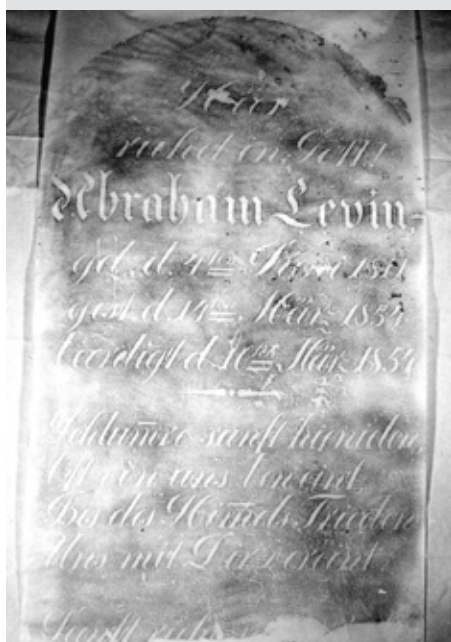 Hier
ruhet in Gott!
Abraham Levin-
geb. d. 4ten 
gest. d. 14ten März 1854
beerdigt d. 16ten März 1854
Schlum̄re sanft hienieden
Oft von uns beweint
Bis des Him̄els Frieden
Uns mit Dir vereint
Sanft